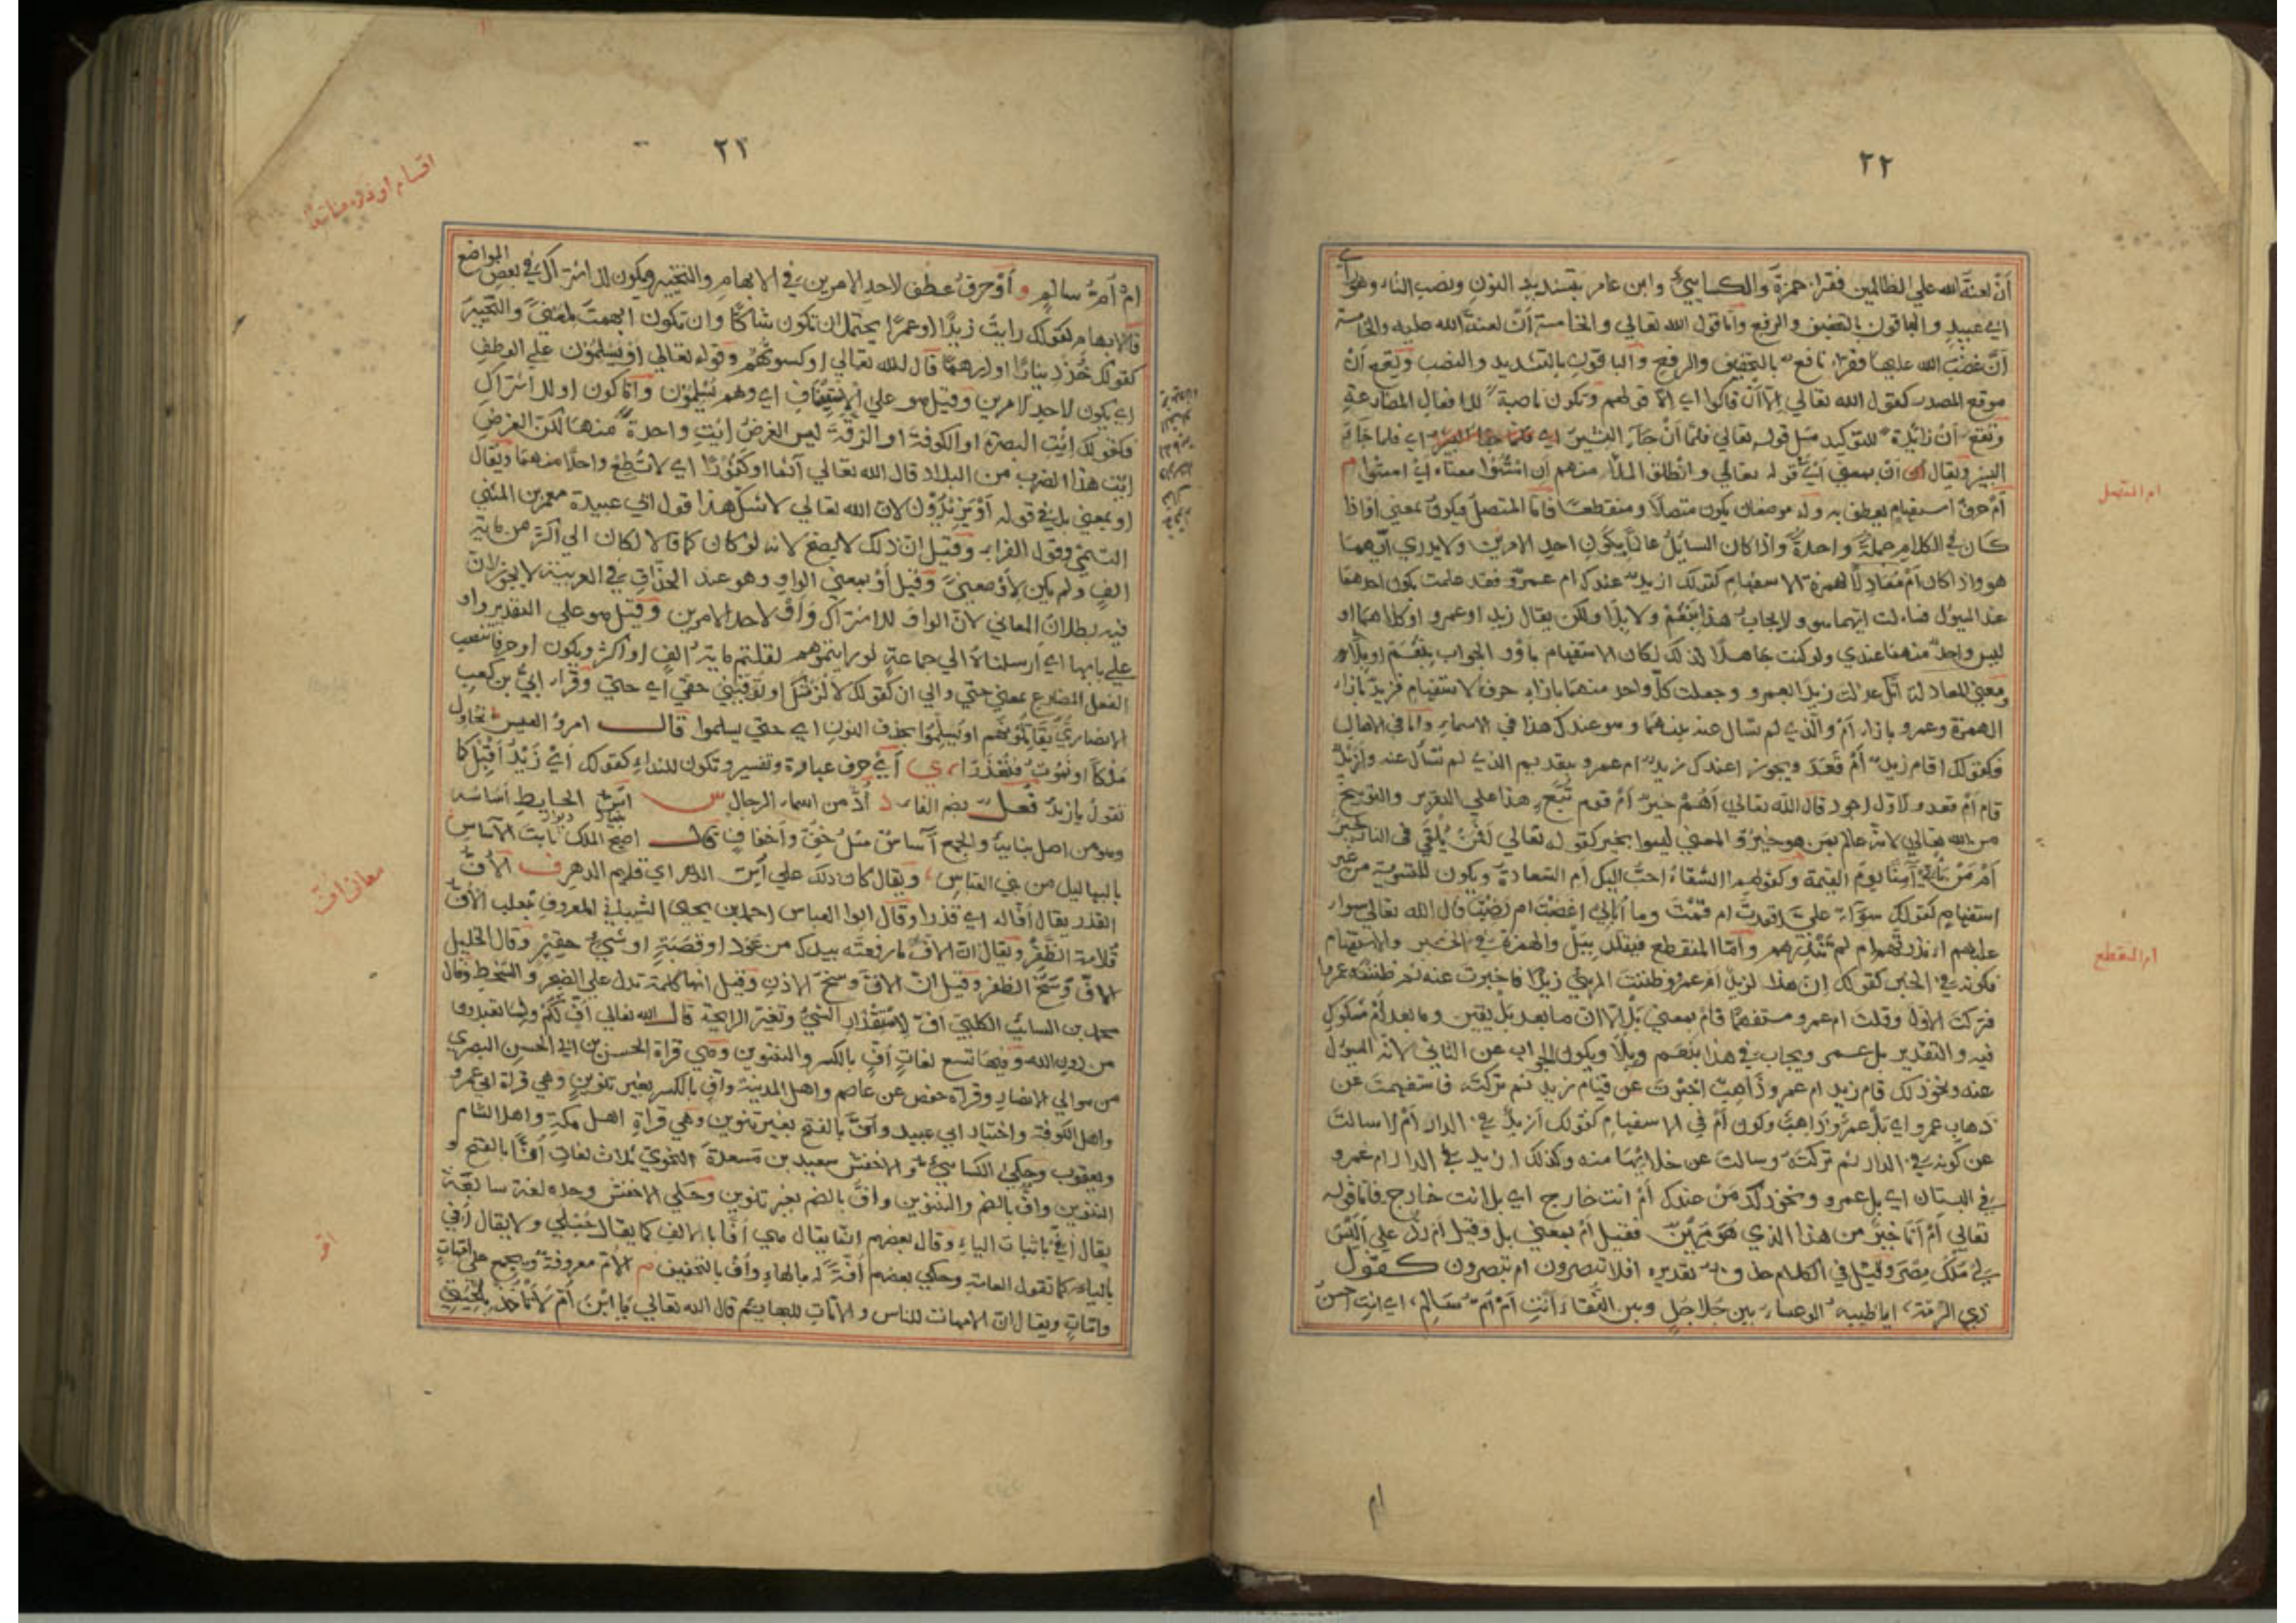 ٢٢
أن لعنة الله علي الظالمين فقرا حمزة والكسايي وابن عامر بتشديد النون ونصب التاء وهو
ابي عبيد والباقون بالتخفيف والرفع وأما قول الله تعالي والخامسة أن لعنة الله عليه والخامسة
أن غضب الله عليها فقرا نافع بالتخفيف والرفع والباقون بالتشديد والنصب وتقع أن
موقع المصدر كقول الله تعالي إلا أن قالوا اي إلا قولهم وتكون ناصبة للافعال المضارعة
وتقع أن زائدة للتوكيد مثل قوله تعالي فلما أن جاء البشير اي فلما جاء
البشير ويقال أن بمعني اي قوله تعالي وانطلق الملأ منهم أن امشوا معناه اي امشوا م
أم حرف استفهام يعطف به وله موضعان يكون متصلا ومنقطعا فاما المتصل فيكون بمعني أي فاذا
كان في الكلام جملة واحدة واذا كان السائل عالما بكون احد الامرين ولا يدري أيهما
هو واذا كان أم معادلا لهمزة الاستفهام كقولك ازيد عندك ام عمرو فقد علمت كون احدهما
عند المسؤل فسالت ايهما هو ولا يجاب هذا بنعم ولا بلا ولكن يقال زيد او عمرو او كلاهما او
ليس واحد منهما عندي ولو كنت جاهلا لذلك لكان الاستفهام باو والجواب بنعم او بلا و
معني المعادلة أنك عدلت زيدا بعمرو وجعلت كل واحد منهما بازاء حرف الاستفهام فزيد بازاء
الهمزة وعمرو بازاء أم والذي لم تسال عنه بينهما وهو عندك هذا في الاسماء وأما في الافعال
فكقولك اقام زيد أم قعد ويجوز اعندك زيد ام عمرو بتقديم الذي لم تسأل عنه وأزيد
قام أم قعد والاول اجود قال الله تعالي أهم خير أم قوم تبع هذا علي التقرير والتوبيخ
من الله تعالي لانه عالم بمن هو خير والمعني ليسوا بخير كقوله تعالي أفمن يلقي في النار خير
أم من يأتي آمنا يوم القيمة وكقولهم الشقاء احب اليك أم السعادة ويكون للتسوية من غير
استفهام كقولك سواء علي أقعدت ام قمت وما أبالي اغضبت ام رضيت قال الله تعالي سواء
عليهم أنذرتهم ام لم تنذرهم وأما المنقطع فيقدر ببل والهمزة في الخبر والاستفهام
فكونه في الخبر كقولك إن هذا لزيد أم عمرو ظننت المرئي زيدا فاخبرت عنه ثم ظننته عمرا
فتركت الاول وقلت ام عمرو مستفهما فأم بمعني بل إلا ان ما بعد بل يقين وما بعد أم مشكوك
فيه والتقدير بل عمرو ويجاب في هذا بنعم وبلا ويكون الجواب عن الثاني لانه المسؤل
عنه ونحو ذلك قام زيد ام عمرو ذاهب اخبرت عن قيام زيد ثم تركته فاستفهمت عن
ذهاب عمرو اي بل عمرو ذاهب وكون أم في الاستفهام كقولك أزيد في الدار أم لا سالت
عن كونه في الدار ثم تركته وسالت عن خلائها منه وكذلك ازيد في الدار ام عمرو
في البستان اي بل عمرو ونحو ذلك من عندك أم انت خارج اي بل انت خارج فاما قوله
تعالي أم أنا خير من هذا الذي هو مهين فقيل أم بمعني بل وقيل أم رد علي أليس
لي ملك مصر وقيل في الكلام حذف تقديره افلا تبصرون ام تبصرون كقول
ذي الرمة ايا ظبية الوعساء بين جلاجل وبين النقاء أأنت أم أم سالم، اي انت احسن
ام المتصل
ام المنقطع
ام
٢٣
ام أم سالم و أو حرف عطف لاحد الامرين في الابهام والتخيير ويكون للاشتراك في بعض المواضع
فالابهام كقولك رايت زيدا او عمرا يحتمل ان تكون شاكا وان تكون ابهمت لمعني والتخيير
كقولك خذ دينارا او درهما قال الله تعالي او كسوتهم وقوله تعالي او يسلمون علي العطف
اي يكون لاحد الامرين وقيل هو علي الاستيناف اي وهم يسلمون وأما كون او للاشتراك
فكقولك إيت البصرة او الكوفة او الرقة ليس الغرض إيت واحدة منها لكن الغرض
إيت هذا الضرب من البلاد قال الله تعالي آثما او كفورا اي لا تطع واحدا منهما ويقال
او بمعني بل في قوله أو يزيدون لان الله تعالي لا يشك هذا قول ابي عبيدة معمر بن المثني
التيمي وقول الفراء وقيل ان ذلك لا يصح لانه لو كان كما قالا لكان الي اكثر من مائة
الف ولم يكن لأو معني وقيل أو بمعني الواو وهو عند الحذاق في العربية لا يجوز لان
فيه بطلان المعاني لان الواو للاشتراك وأو لاحد الامرين وقيل هو علي التقدير واو
علي بابها اي ارسلناه الي جماعة لو رايتموهم لقلتم مائة الف او اكثر ويكون او حرفا تنصب
الفعل المضارع بمعني حتي والي ان كقولك لألزمنك او توفيني حقي اي حتي وقرا ابي بن كعب
الانصاري تقاتلونهم او يسلموا بحذف النون اي حتي يسلموا قال امرؤ القيس نحاول
ملكا او نموت فنعذرا، ي أي حرف عبارة وتفسير وتكون للنداء كقولك أي زيد أقبل كما
تقول يا زيد فعل بضم الفاء د أد من اسماء الرجال س أس الحايط أساسه
وهو من اصل بنايه والجمع آساس مثل خف وأخفاف قال اصبح الملك ثابت الآساس
بالبهاليل من بني العباس، ويقال كان ذلك علي أس الدهر اي قديم الدهر ف الأف
القذر يقال أفا له اي قذرا وقال ابو العباس احمد بن يحيي الشيباني المعروف بثعلب الأف
قلامة الظفر ويقال ان الاف ما رفعته بيدك من عود او قصبة او شيء حقير وقال الخليل
الاف وسخ الظفر وقيل ان الاف وسخ الاذن وقيل انها كلمة تدل علي الضجر والتسخط وقال
محمد بن السائب الكلبي اف لاستقذار الشيء وتغير الرايحة قال الله تعالي أف لكم ولما تعبدون
من دون الله وفيها تسع لغات أف بالكسر والتنوين وهي قراة الحسن بن ابي الحسن البصري
من موالي الانصار وقراة حفص عن عاصم واهل المدينة وأف بالكسر بغير تنوين وهي قراة ابي عمرو
واهل الكوفة واختيار ابي عبيد وأف بالفتح بغير تنوين وهي قراة اهل مكة واهل الشام
ويعقوب وحكي الكسايي والاخفش سعيد بن مسعدة النحوي ثلاث لغات أفا بالفتح و
التنوين واف بالضم والتنوين واف بالضم بغير تنوين وحكي الاخفش وحده لغة سابعة
يقال أفي باثبات الياء وقال بعضهم انما يقال هي أفا بالالف كما يقال حبلي ولا يقال أفي
بالياء كما تقول العامة وحكي بعضهم أفة له بالهاء وأف بالتخفيف م الأم معروفة ويجمع علي امهات
وامات ويقال ان الامهات للناس والامات للبهايم قال الله تعالي يا ابن أم لا تأخذ بلحيتي
معاني اف